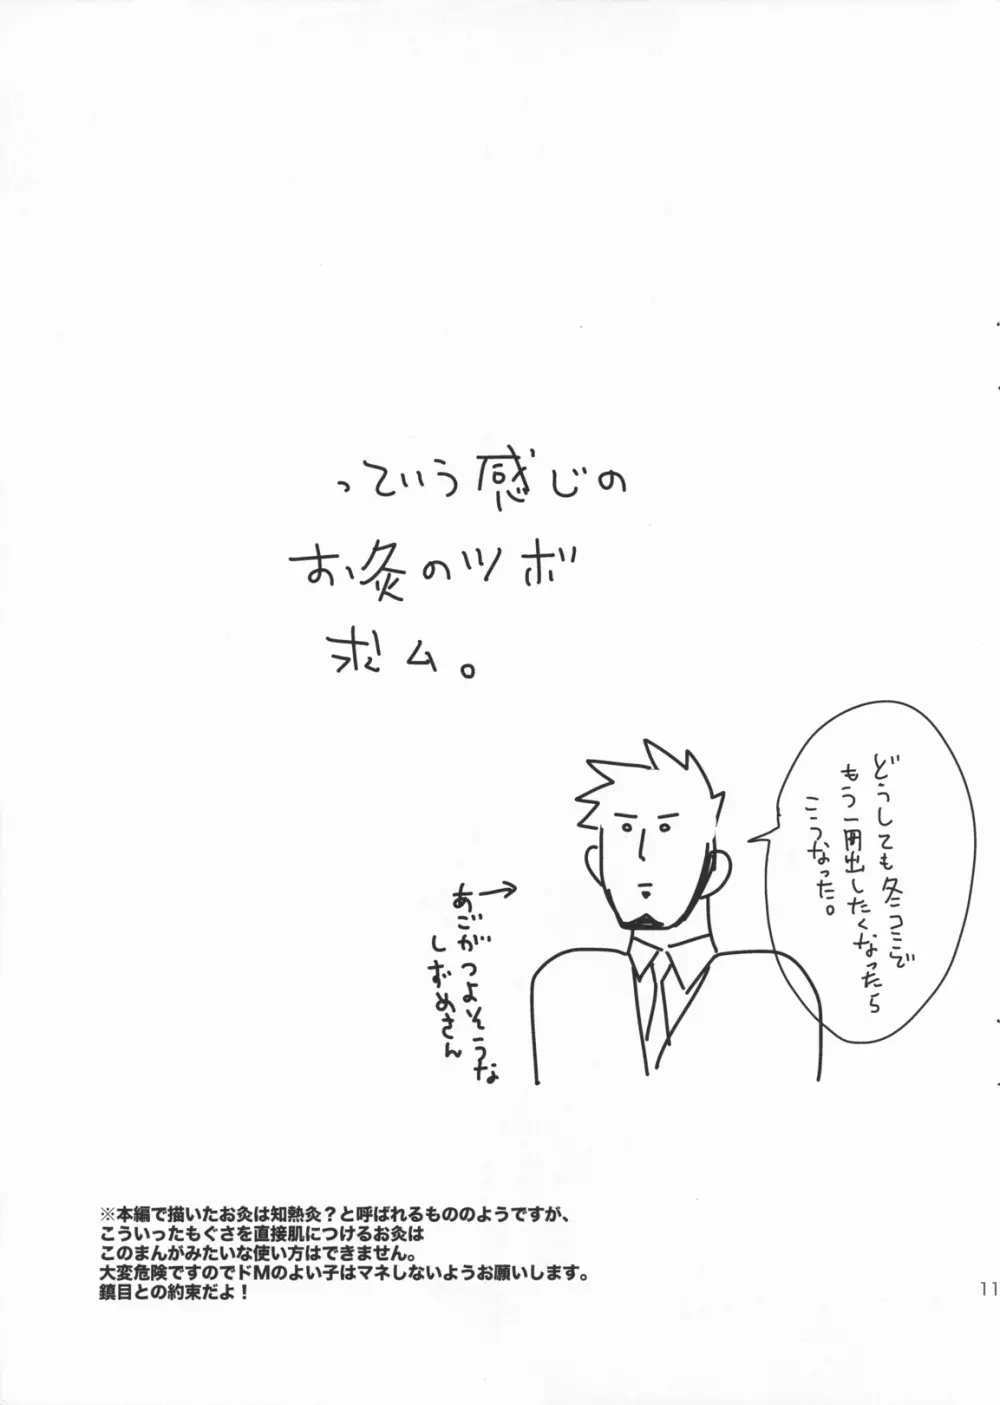 っていう感じの
お灸のツボ
求ム。
どうしても冬コミで
もう一冊出したくなったら
こうなった。
→
あごがつよそうな
しずめさん
※本編で描いたお灸は知熱灸？と呼ばれるもののようですが、
こういったもぐさを直接肌につけるお灸は
このまんがみたいな使い方はできません。
大変危険ですのでドMのよい子はマネしないようお願いします。
鎮目との約束だよ！
11